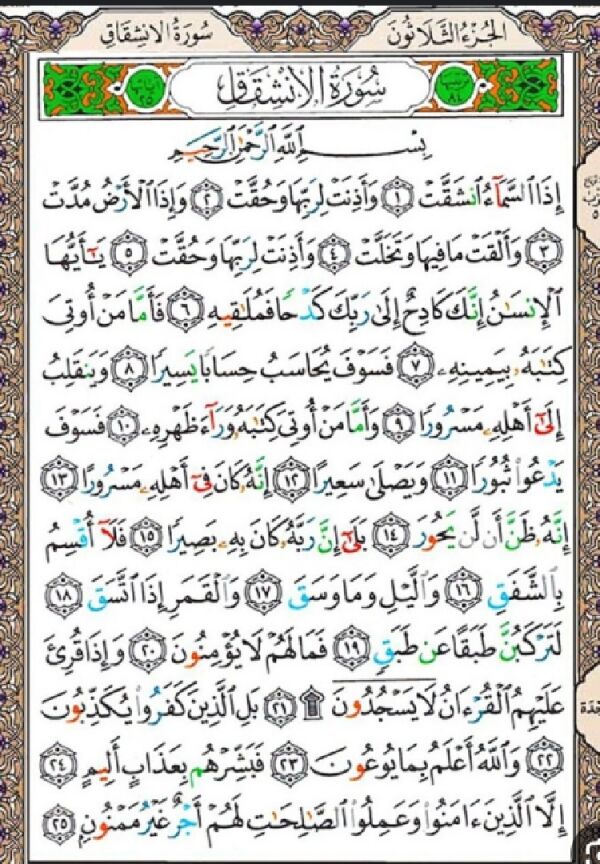 الجُزْءُ الثَّلَاثُونَ سُورَةُ الِانشِقَاقِ
سُورَةُ الِانشِقَاقِ
بِسْمِ ٱللَّهِ ٱلرَّحْمَٰنِ ٱلرَّحِيمِ
إِذَا ٱلسَّمَآءُ ٱنشَقَّتْ ١ وَأَذِنَتْ لِرَبِّهَا وَحُقَّتْ ٢ وَإِذَا ٱلْأَرْضُ مُدَّتْ
٣ وَأَلْقَتْ مَا فِيهَا وَتَخَلَّتْ ٤ وَأَذِنَتْ لِرَبِّهَا وَحُقَّتْ ٥ يَٰٓأَيُّهَا
ٱلْإِنسَٰنُ إِنَّكَ كَادِحٌ إِلَىٰ رَبِّكَ كَدْحًا فَمُلَٰقِيهِ ٦ فَأَمَّا مَنْ أُوتِىَ
كِتَٰبَهُۥ بِيَمِينِهِۦ ٧ فَسَوْفَ يُحَاسَبُ حِسَابًا يَسِيرًا ٨ وَيَنقَلِبُ
إِلَىٰٓ أَهْلِهِۦ مَسْرُورًا ٩ وَأَمَّا مَنْ أُوتِىَ كِتَٰبَهُۥ وَرَآءَ ظَهْرِهِۦ ١٠ فَسَوْفَ
يَدْعُوا۟ ثُبُورًا ١١ وَيَصْلَىٰ سَعِيرًا ١٢ إِنَّهُۥ كَانَ فِىٓ أَهْلِهِۦ مَسْرُورًا ١٣
إِنَّهُۥ ظَنَّ أَن لَّن يَحُورَ ١٤ بَلَىٰٓ إِنَّ رَبَّهُۥ كَانَ بِهِۦ بَصِيرًا ١٥ فَلَآ أُقْسِمُ
بِٱلشَّفَقِ ١٦ وَٱلَّيْلِ وَمَا وَسَقَ ١٧ وَٱلْقَمَرِ إِذَا ٱتَّسَقَ ١٨
لَتَرْكَبُنَّ طَبَقًا عَن طَبَقٍ ١٩ فَمَا لَهُمْ لَا يُؤْمِنُونَ ٢٠ وَإِذَا قُرِئَ
عَلَيْهِمُ ٱلْقُرْءَانُ لَا يَسْجُدُونَ ۩ ٢١ بَلِ ٱلَّذِينَ كَفَرُوا۟ يُكَذِّبُونَ
٢٢ وَٱللَّهُ أَعْلَمُ بِمَا يُوعُونَ ٢٣ فَبَشِّرْهُم بِعَذَابٍ أَلِيمٍ ٢٤
إِلَّا ٱلَّذِينَ ءَامَنُوا۟ وَعَمِلُوا۟ ٱلصَّٰلِحَٰتِ لَهُمْ أَجْرٌ غَيْرُ مَمْنُونٍۭ ٢٥